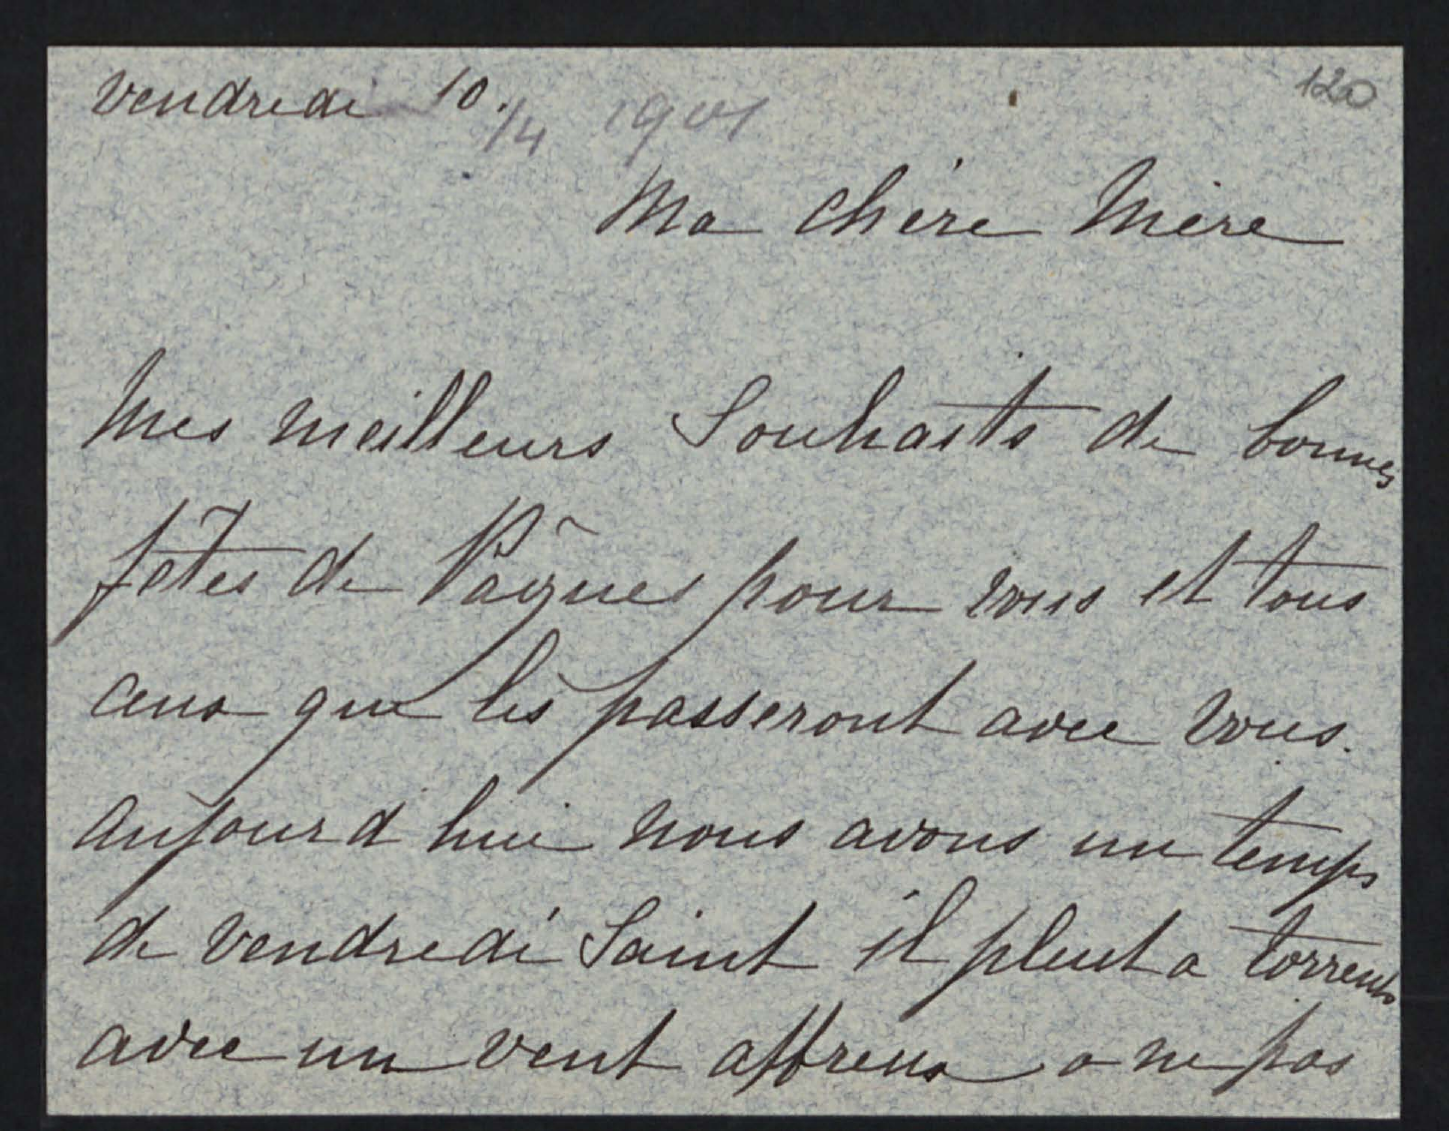 vendredi 10. /4 1901
120
Ma chère Mère
Mes meilleurs Souhaits de bonnes
fêtes de Pâques pour vous et tous
ceux que les passeront avec vous.
Aujourd'hui nous avons un temps
de vendredi Saint il pleut a torrents
avec un vent affreux a ne pas